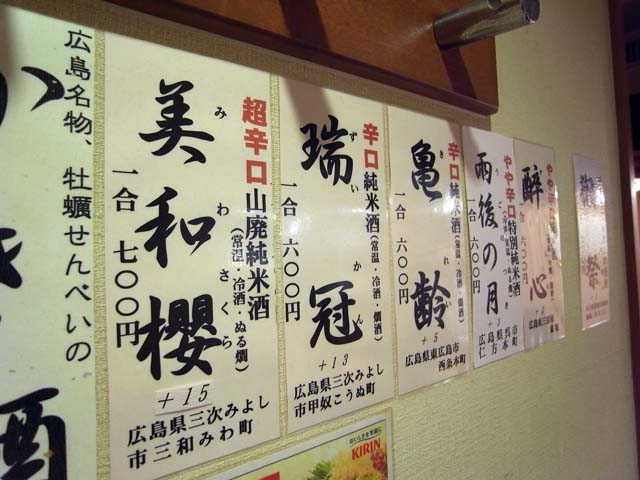 広島名物、牡蠣せんべいの
酒
超辛口 山廃純米酒
(常温・冷酒・ぬる燗)
美和櫻
みわさくら
一合 七〇〇円
+15
広島県三次みよし
市三和みわ町
辛口 純米酒
(常温・冷酒・燗酒)
瑞冠
ずいかん
一合 六〇〇円
+13
広島県三次みよし
市甲奴こうぬ町
辛口 純米酒
(常温・冷酒・燗酒)
亀齢
きれい
一合 六〇〇円
+5
広島県東広島市
西条本町
やや辛口 特別純米酒
雨後の月
うごのつき
一合 六〇〇円
+3
広島県呉市
仁方本町
やや辛口
酔心
一合
+2
祭
KIRIN